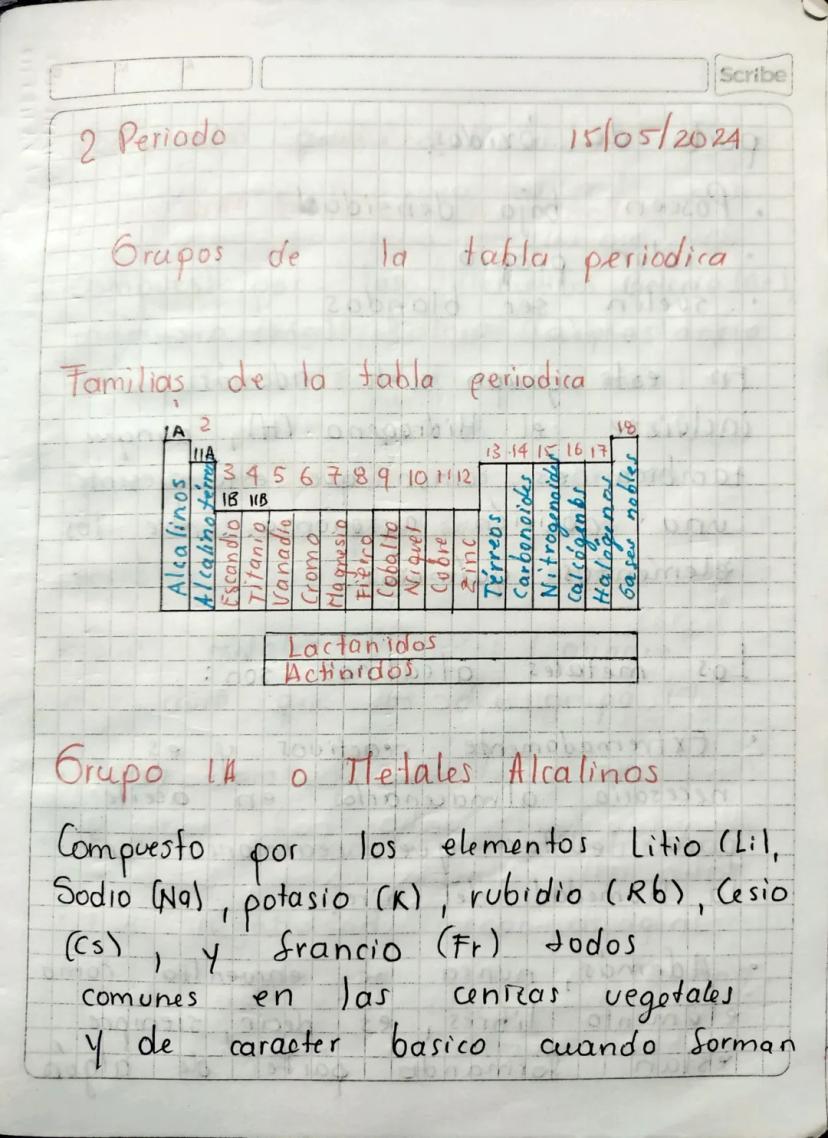 Scribe
2 Periodo 15/05/2024
Grupos de la tabla periodica
Familias de la tabla periodica
1 2 18
IA IIA 13 14 15 16 17
3 4 5 6 7 8 9 10 11 12
IB IIB
Alcalinos
Escandio
Titanio
Vanadio
Cromo
Magnesio
Fierro
Cobalto
Niquel
Cobre
Zinc
Térreos
Carbonoides
Nitrogenoides
Calcógenos
Halógenos
Gases nobles
Lactanidos
Actinidos
Grupo IA o Metales Alcalinos
Compuesto por los elementos Litio (Li),
Sodio (Na), potasio (K), rubidio (Rb), Cesio
(Cs), y francio (Fr) todos
comunes en las cenizas vegetales
y de caracter basico cuando forman